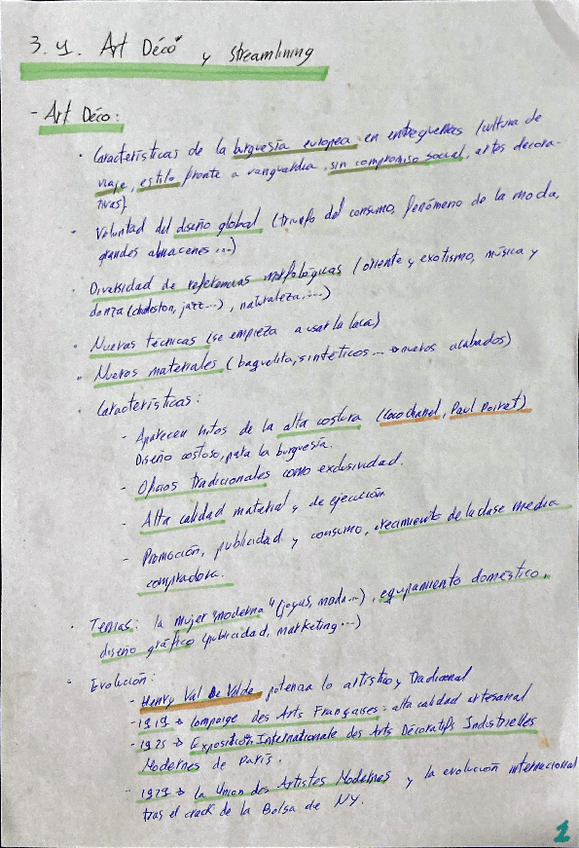 3.4. Art Déco y streamlining
- Art Déco:
· Características de la burguesía europea en entreguerras (cultura de
viaje, estilo frente a vanguardia, sin compromiso social, artes decora-
tivas)
· Voluntad del diseño global (triunfo del consumo, fenómeno de la moda,
grandes almacenes ...)
· Diversidad de referencias morfológicas (oriente y exotismo, música y
danza (charleston, jazz...), naturaleza, ...)
· Nuevas técnicas (se empieza a usar la laca)
· Nuevos materiales (baquelita, sintéticos ... → nuevos acabados)
· Características:
- Aparecen hitos de la alta costura (Coco Chanel, Paul Poiret)
Diseño costoso, para la burguesía.
- Oficios Tradicionales como exclusividad.
- Alta calidad material y de ejecución
- Promoción, publicidad y consumo, crecimiento de la clase media
compradora.
· Temas: la mujer "moderna" (joyas, moda...), equipamiento doméstico,
diseño gráfico (publicidad, marketing ...)
· Evolución:
- Henry Val De Velde potencia lo artístico y Tradicional
- 1919 → Compaige des Arts Françaises: alta calidad artesanal
- 1925 → Exposition Internationale des Arts Décoratifs Industrielles
Modernes de París.
- 1929 → la Union des Artistes Modernes y la evolución internacional
tras el crack de la Bolsa de NY.
1